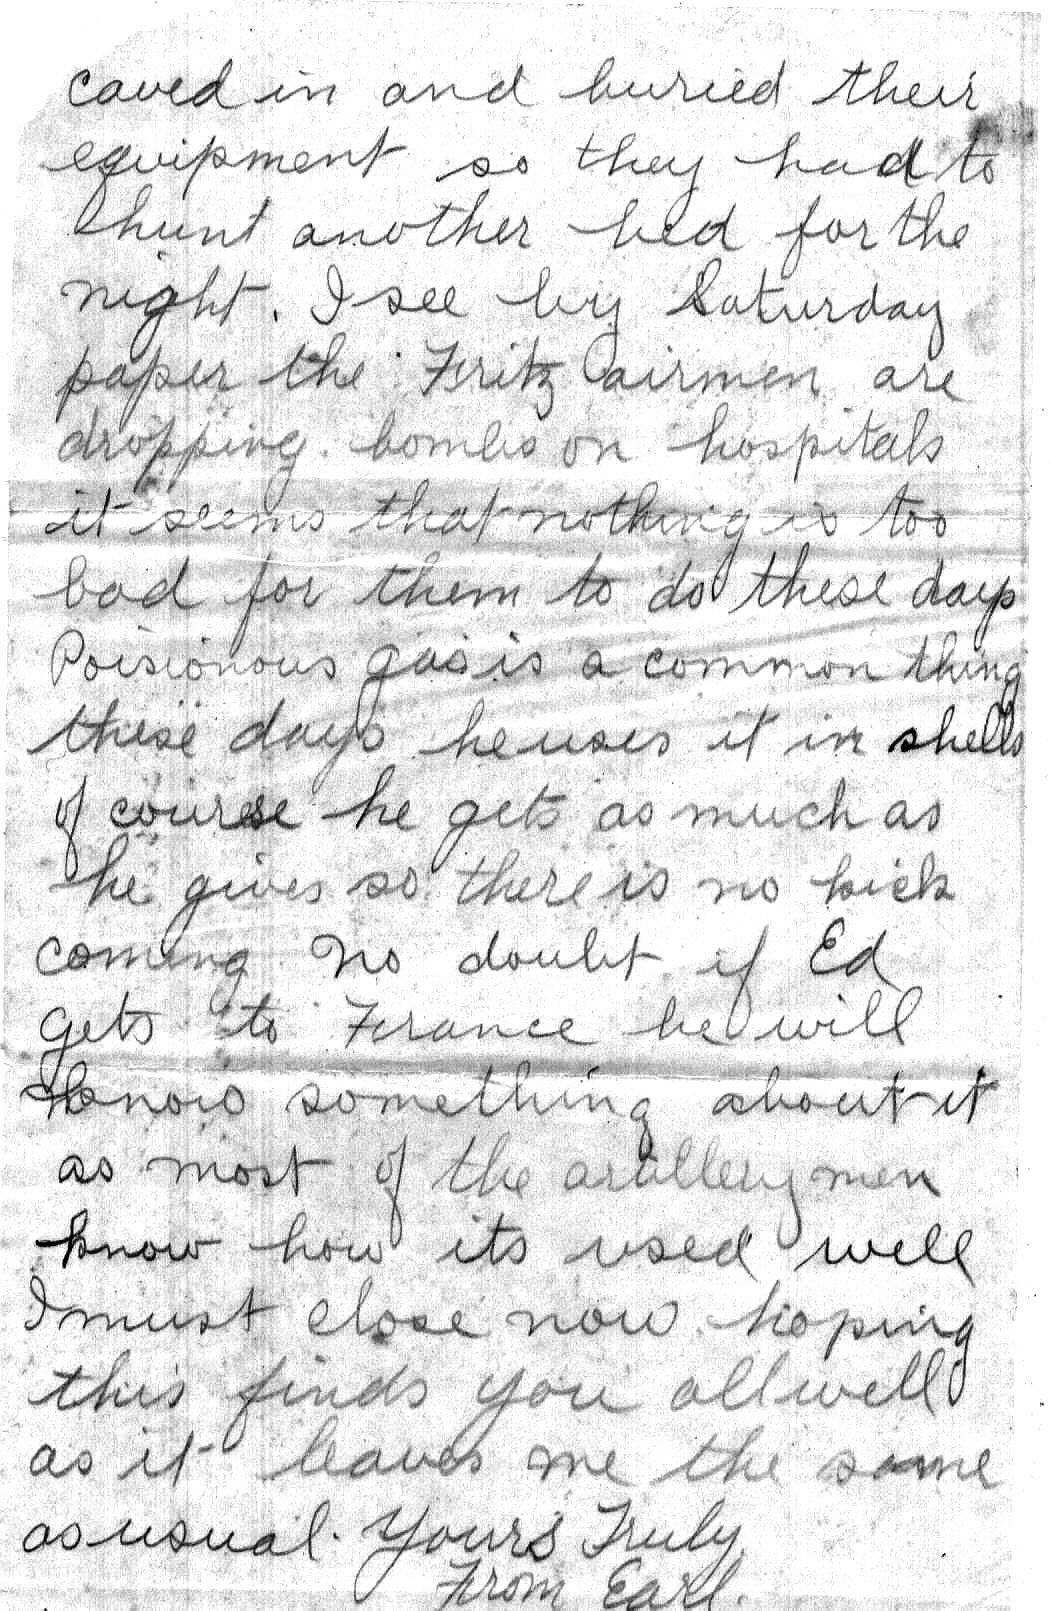 caved in and buried their
equipment so they had to
hunt another bed for the
night. I see by Saturday
paper the Fritz airmen are
dropping bombs on hospitals
it seems that nothing is too
bad for them to do these days
Poisionous gas is a common thing
these days he uses it in shells
of course he gets as much as
he gives so there is no kick
coming No doubt if Ed
gets to France he will
know something about it
as most of the artillery men
know how its used well
I must close now hoping
this finds you all well
as it leaves me the same
as usual. Yours Truly
From Earl.